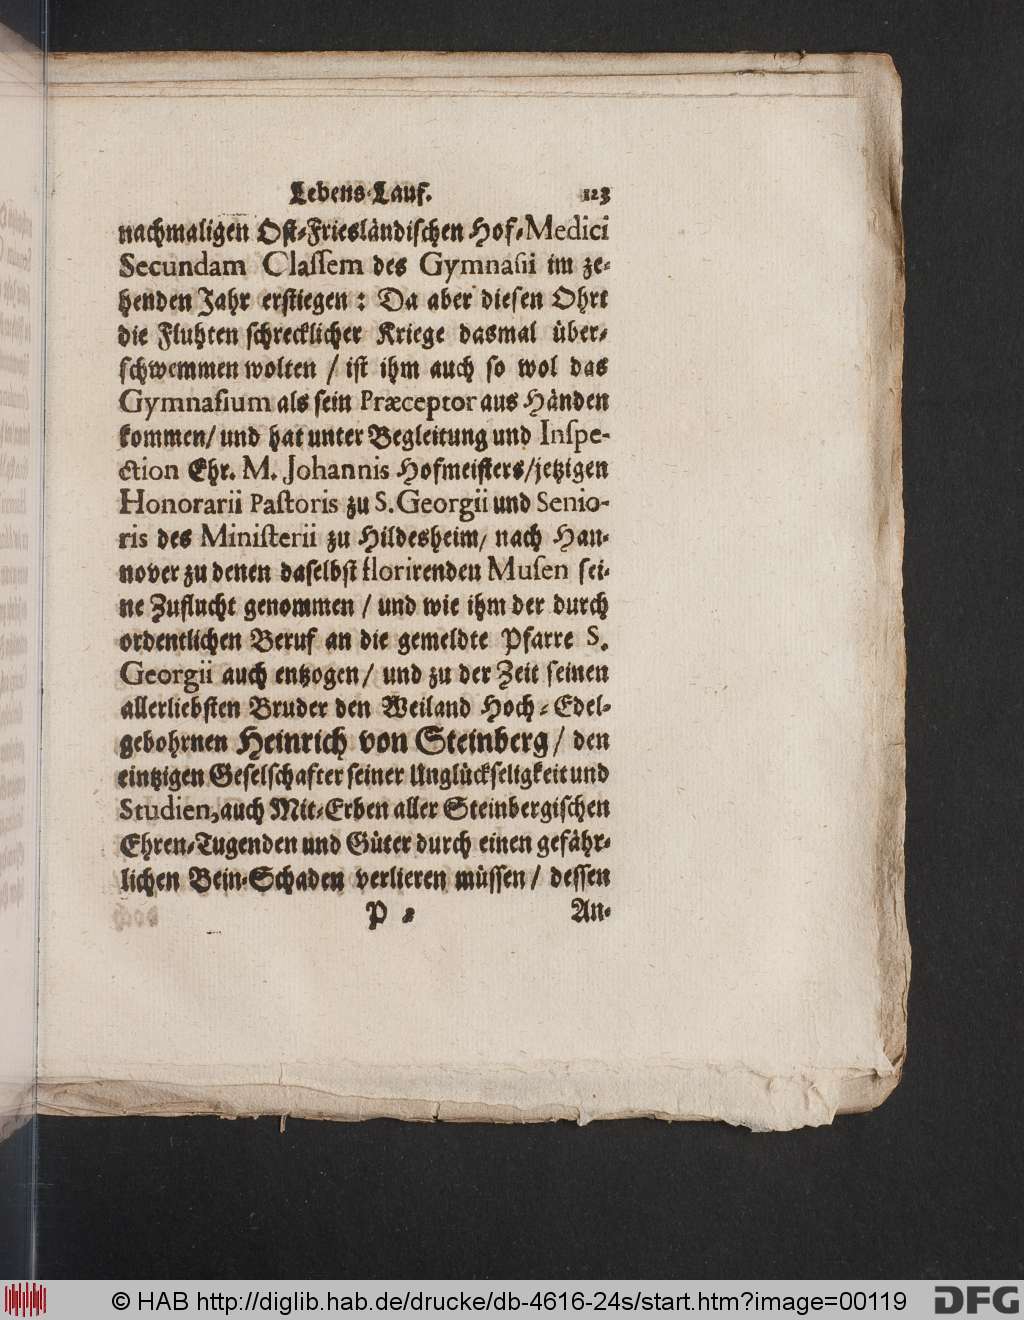 Lebens-Lauf. 123
nachmaligen Ost-Friesländischen Hof-Medici
Secundam Classem des Gymnasii im ze-
henden Jahr erstiegen: Da aber diesen Ohrt
die Fluhten schrecklicher Kriege dasmal über-
schwemmen wolten / ist ihm auch so wol das
Gymnasium als sein Præceptor aus Händen
kommen / und hat unter Begleitung und Inspe-
ction Ehr. M. Johannis Hofmeisters / jetzigen
Honorarii Pastoris zu S. Georgii und Senio-
ris des Ministerii zu Hildesheim / nach Han-
nover zu denen daselbst florirenden Musen sei-
ne Zuflucht genommen / und wie ihm der durch
ordentlichen Beruf an die gemeldte Pfarre S.
Georgii auch entzogen / und zu der Zeit seinen
allerliebsten Bruder den Weiland Hoch-Edel-
gebohrnen Heinrich von Steinberg / den
eintzigen Geselschafter seiner Unglückseligkeit und
Studien, auch Mit-Erben aller Steinbergischen
Ehren-Tugenden und Güter durch einen gefähr-
lichen Bein-Schaden verlieren müssen / dessen
P 2 An-
© HAB http://diglib.hab.de/drucke/db-4616-24s/start.htm?image=00119 DFG